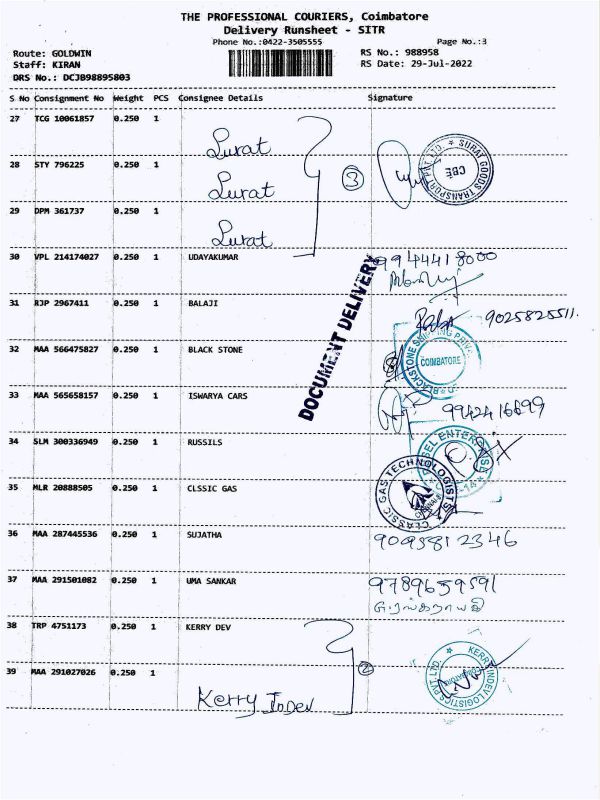 THE PROFESSIONAL COURIERS, Coimbatore
Delivery Runsheet - SITR
Phone No.:0422-3505555 Page No.:3
Route: GOLDWIN RS No.: 988958
Staff: KIRAN RS Date: 29-Jul-2022
DRS No.: DCJB98895803
S No Consignment No Weight PCS Consignee Details Signature
27 TCG 10061857 0.250 1 Surat
SURAT GOODS TRANSPORT PVT. LTD. ★ CBE
28 STY 796225 0.250 1 Surat 3
29 DPM 361737 0.250 1 Surat
30 VPL 214174027 0.250 1 UDAYAKUMAR 9944418000
DOCUMENT DELIVERY
31 RJP 2967411 0.250 1 BALAJI 9025825511.
32 MAA 566475827 0.250 1 BLACK STONE
BLACKSTONE SHIPPING COIMBATORE
33 MAA 565658157 0.250 1 ISWARYA CARS 9942416699
34 SLM 300336949 0.250 1 RUSSILS
35 MLR 20888505 0.250 1 CLSSIC GAS
CLASSIC GAS TECHNOLOGISTS
36 MAA 287445536 0.250 1 SUJATHA 9095812346
37 MAA 291501082 0.250 1 UMA SANKAR 9789659591
38 TRP 4751173 0.250 1 KERRY DEV
2
KERRY INDEV LOGISTICS PVT. LTD. ★
39 MAA 291027026 0.250 1
Kerry Indev